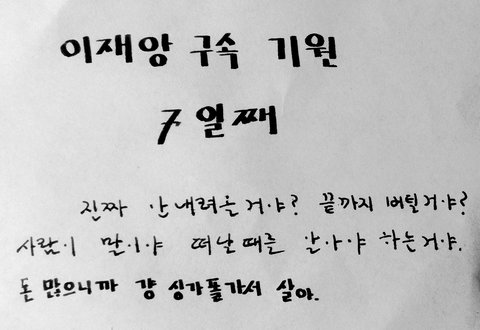 이재앙 구속 기원
7일째
진짜 안내려올거야? 끝까지 버틸거야?
사람이 말이야 떠날때를 알아야 하는거야.
돈 많으니까 걍 싱가폴가서 살아.